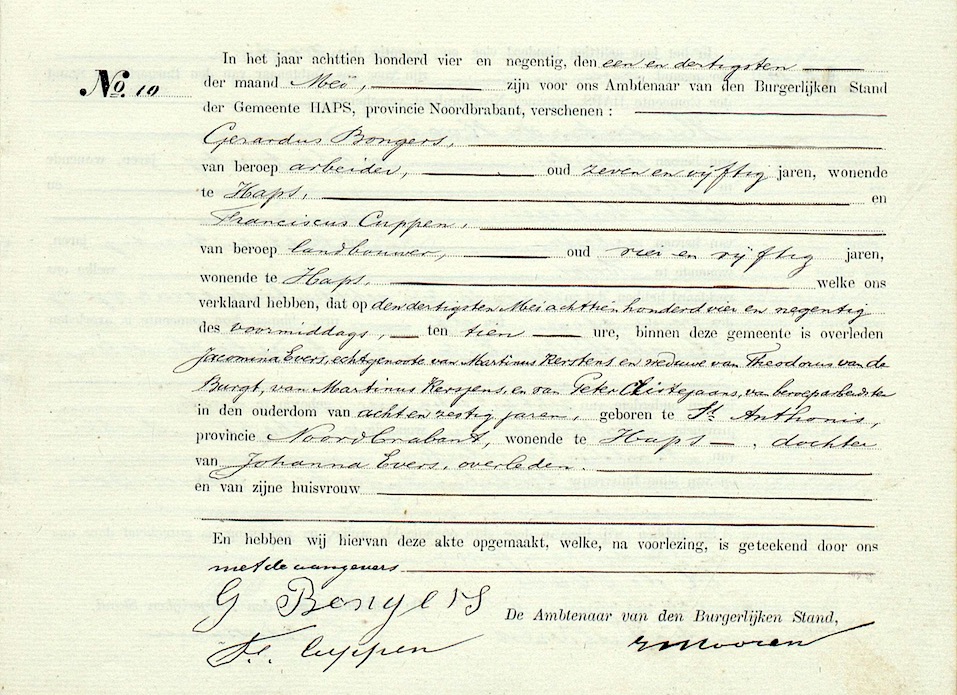 In het jaar achttien honderd vier en negentig, den een en dertigsten
No. 10
der maand Mei, zijn voor ons Ambtenaar van den Burgerlijken Stand
der Gemeente HAPS, provincie Noordbrabant, verschenen :
Gerardus Bongers,
van beroep arbeider, oud zeven en vijftig jaren, wonende
te Haps, en
Franciscus Cuppen,
van beroep landbouwer, oud vier en vijftig jaren,
wonende te Haps, welke ons
verklaard hebben, dat op den dertigsten Mei achttien honderd vier en negentig
des voormiddags, ten tien ure, binnen deze gemeente is overleden
Jacomina Evers, echtgenoote van Martinus Kerstens en weduwe van Theodorus van de
Burgt, van Martinus Kersjens, en van Peter van beroep arbeidster
in den ouderdom van acht en zestig jaren, geboren te St. Anthonis,
provincie Noordbrabant, wonende te Haps, dochter
van Johanna Evers, overleden.
en van zijne huisvrouw
En hebben wij hiervan deze akte opgemaakt, welke, na voorlezing, is geteekend door ons
met de aangevers
G Bongers
De Ambtenaar van den Burgerlijken Stand,
Fr. Cuppen